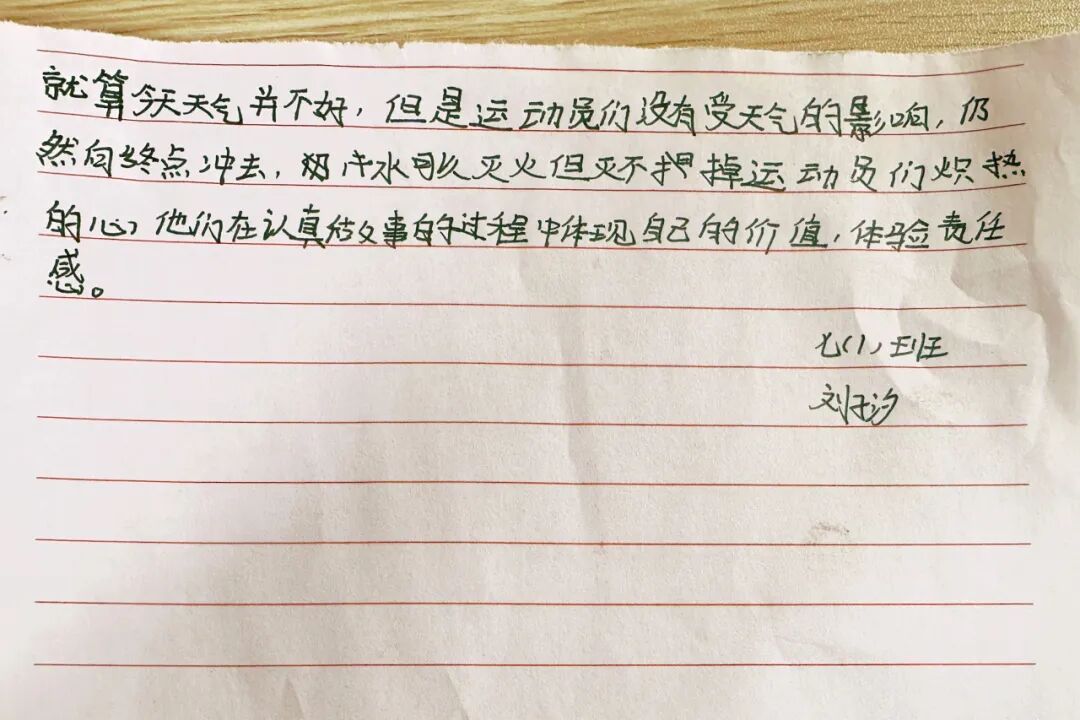 就算今天天气并不好，但是运动员们没有受天气的影响，仍
然向终点冲去，水可以灭火但灭不掉运动员们炽热
的心，他们在认真做事的过程中体现自己的价值，体验责任
感。
七（1）班
刘子汐